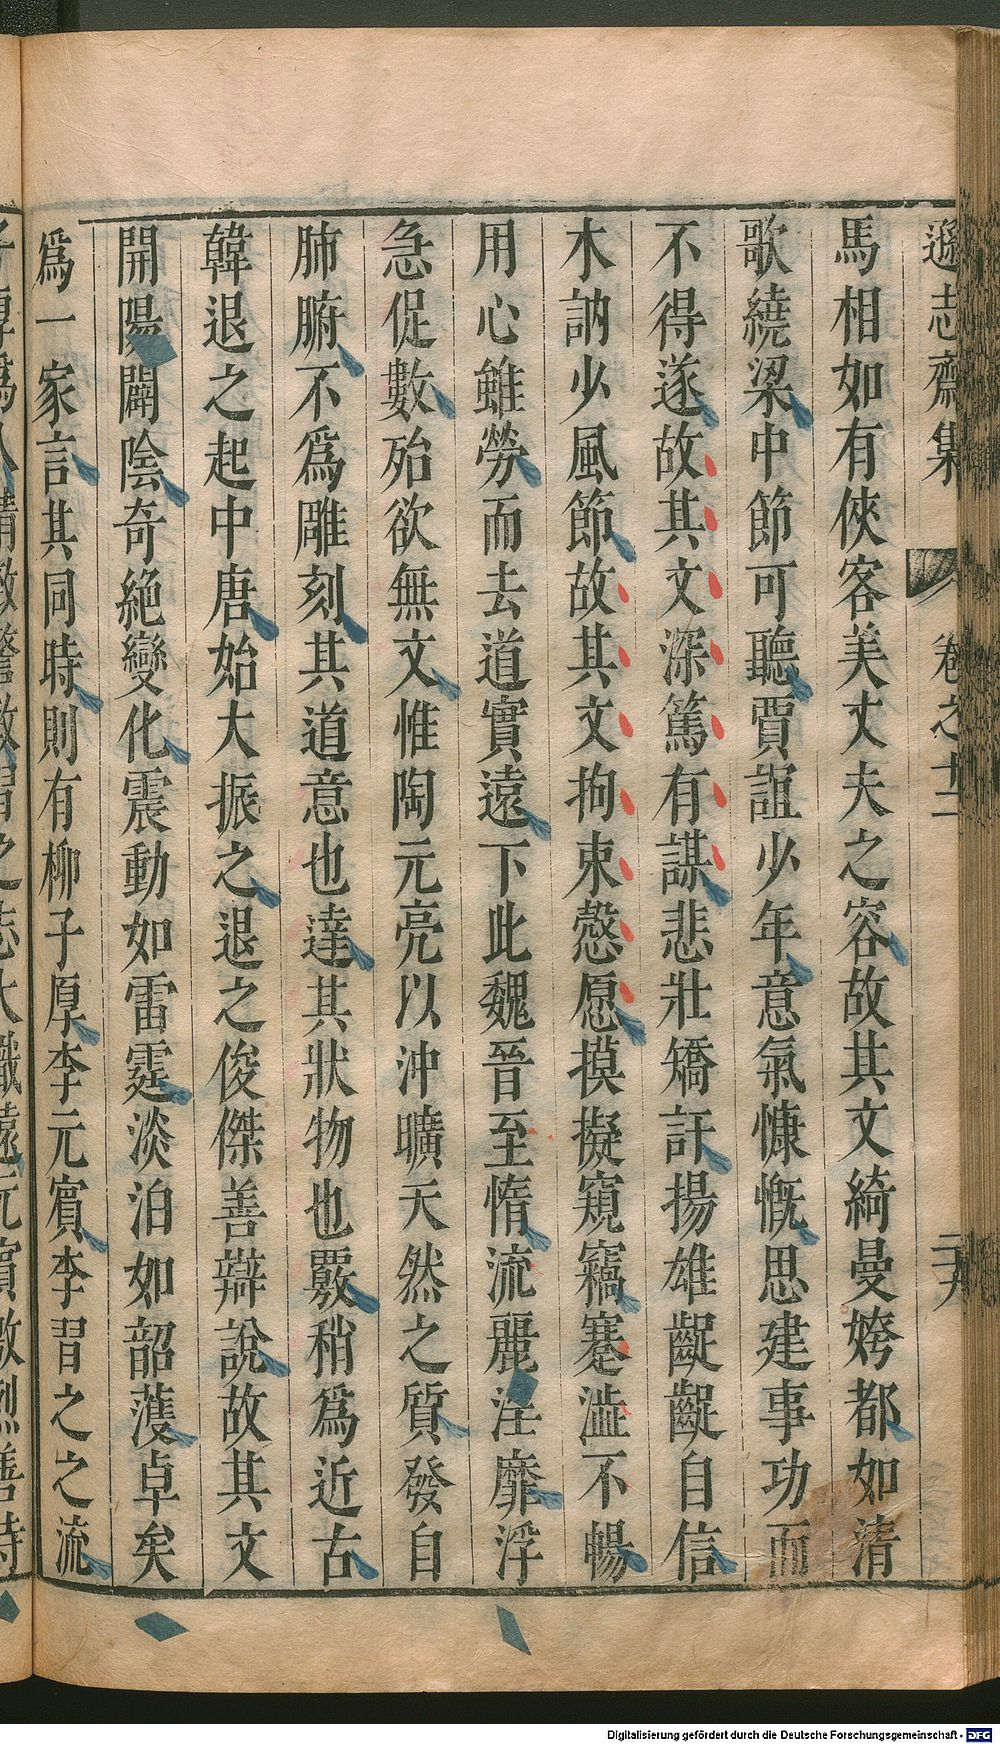 遜志齋集 卷之十二 二十九
馬相如有俠客美丈夫之容故其文綺曼姱都如清
歌繞梁中節可聽賈誼少年意氣慷慨思建事功而
不得遂故其文深篤有謀悲壯矯訐揚雄齪齪自信
木訥少風節故其文拘束慤愿摸擬窺竊蹇澁不暢
用心雖勞而去道實遠下此魏晉至惰流麗淫靡浮
急促數殆欲無文惟陶元亮以沖曠天然之質發自
肺腑不爲雕刻其道意也達其狀物也覈稍爲近古
韓退之起中唐始大振之退之俊傑善辯說故其文
開陽闢陰奇絕變化震動如雷霆淡泊如韶濩卓矣
爲一家言其同時則有柳子厚李元賓李習之之流
Digitalisierung gefördert durch die Deutsche Forschungsgemeinschaft - DFG